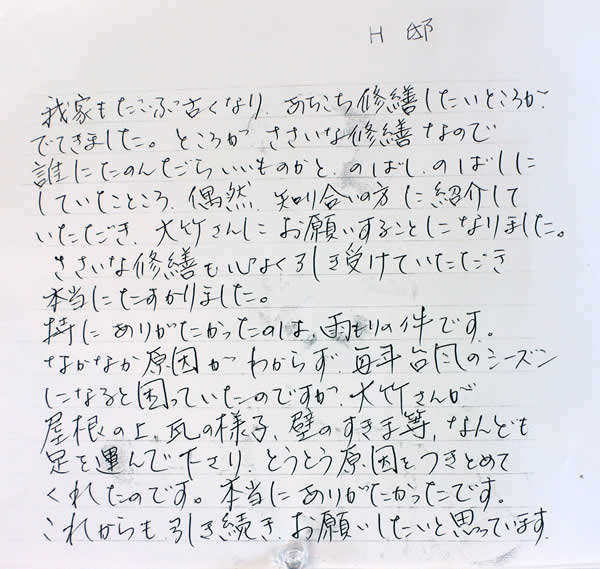 H 邸
我家もだいぶ古くなり、あちこち修繕したいところが、
でてきました。ところが ささいな修繕なので
誰にたのんだらいいものかと、のばし、のばしに
していたところ、偶然、知り合いの方に紹介して
いただき、大竹さんに お願いすることになりました。
ささいな修繕も心よく引き受けていただき
本当にたすかりました。
特に ありがたかったのは、雨もりの件です。
なかなか原因が わからず、毎年台風のシーズン
になると困っていたのですが、大竹さんが
屋根の上、瓦の様子、壁のすきま等、なんども
足を運んで下さり、とうとう原因をつきとめて
くれたのです。本当にありがたかったです。
これからも、引き続き、お願いしたいと思っています。